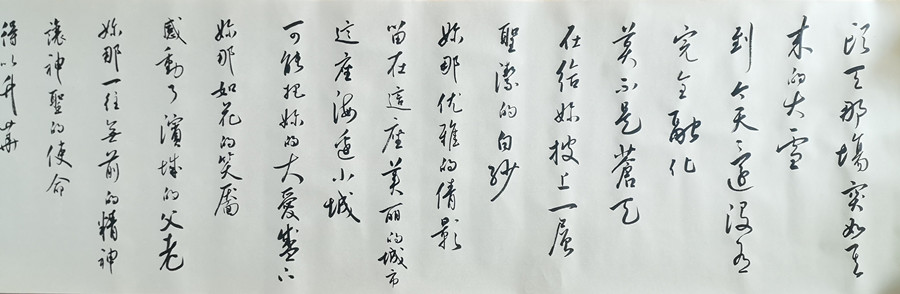 頭天那場突如其
来的大雪
到今天還沒有
完全融化
莫不是蒼天
在給妳披上一層
聖潔的白紗
妳那优雅的倩影
留在這座美丽的城市
這座海邊小城
可能把妳的大愛盛下
妳那如花的笑靥
感動了濱城的父老
妳那一往無前的精神
讓神聖的使命
得以升華